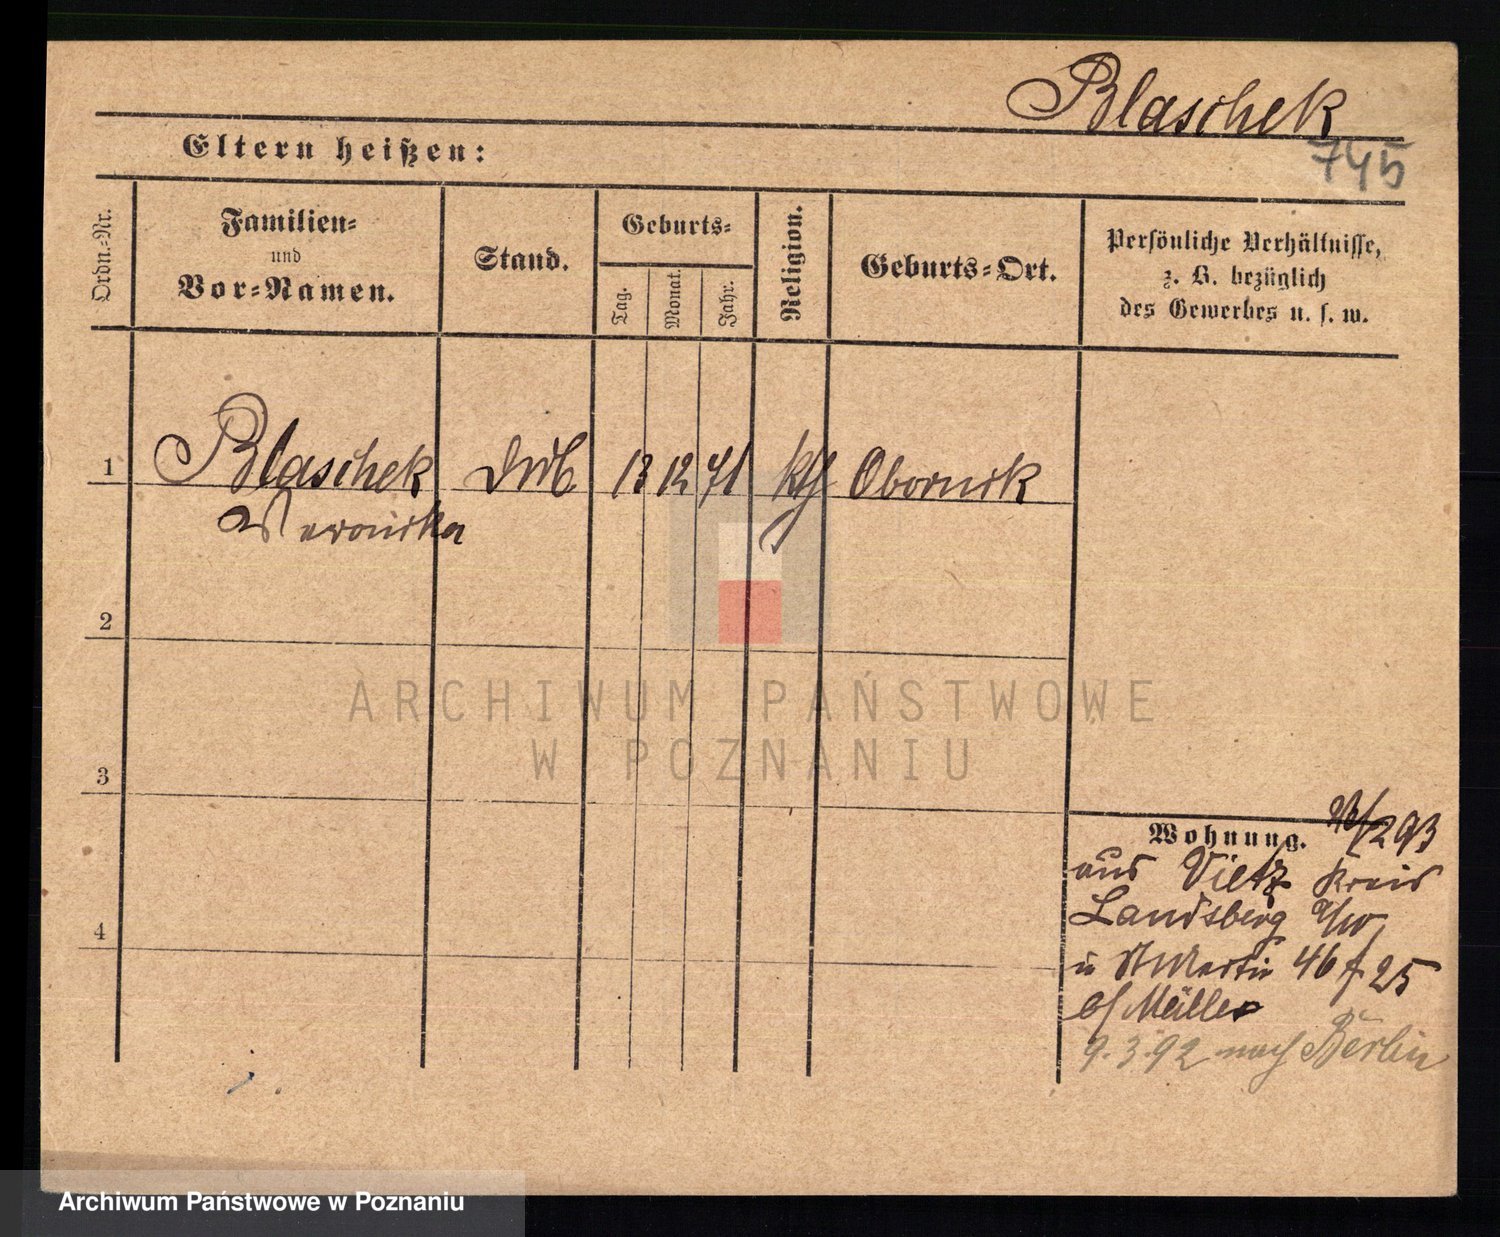 Blaschek
745
Eltern heißen:
Ordn.-Nr.
Familien-
und
Vor-Namen.
Stand.
Geburts-
Tag.
Monat.
Jahr.
Religion.
Geburts-Ort.
Persönliche Verhältnisse,
z. B. bezüglich
des Gewerbes u. s. w.
1 Blaschek 13 12 71 kth Obornik
Veronika
2
3
4
ARCHIWUM PAŃSTWOWE
W POZNANIU
Wohnung. 293
aus Vietz Kreis
Landsberg a/W
St Martin 46 25
b/ Müller
9.3.92 nach Berlin
Archiwum Państwowe w Poznaniu